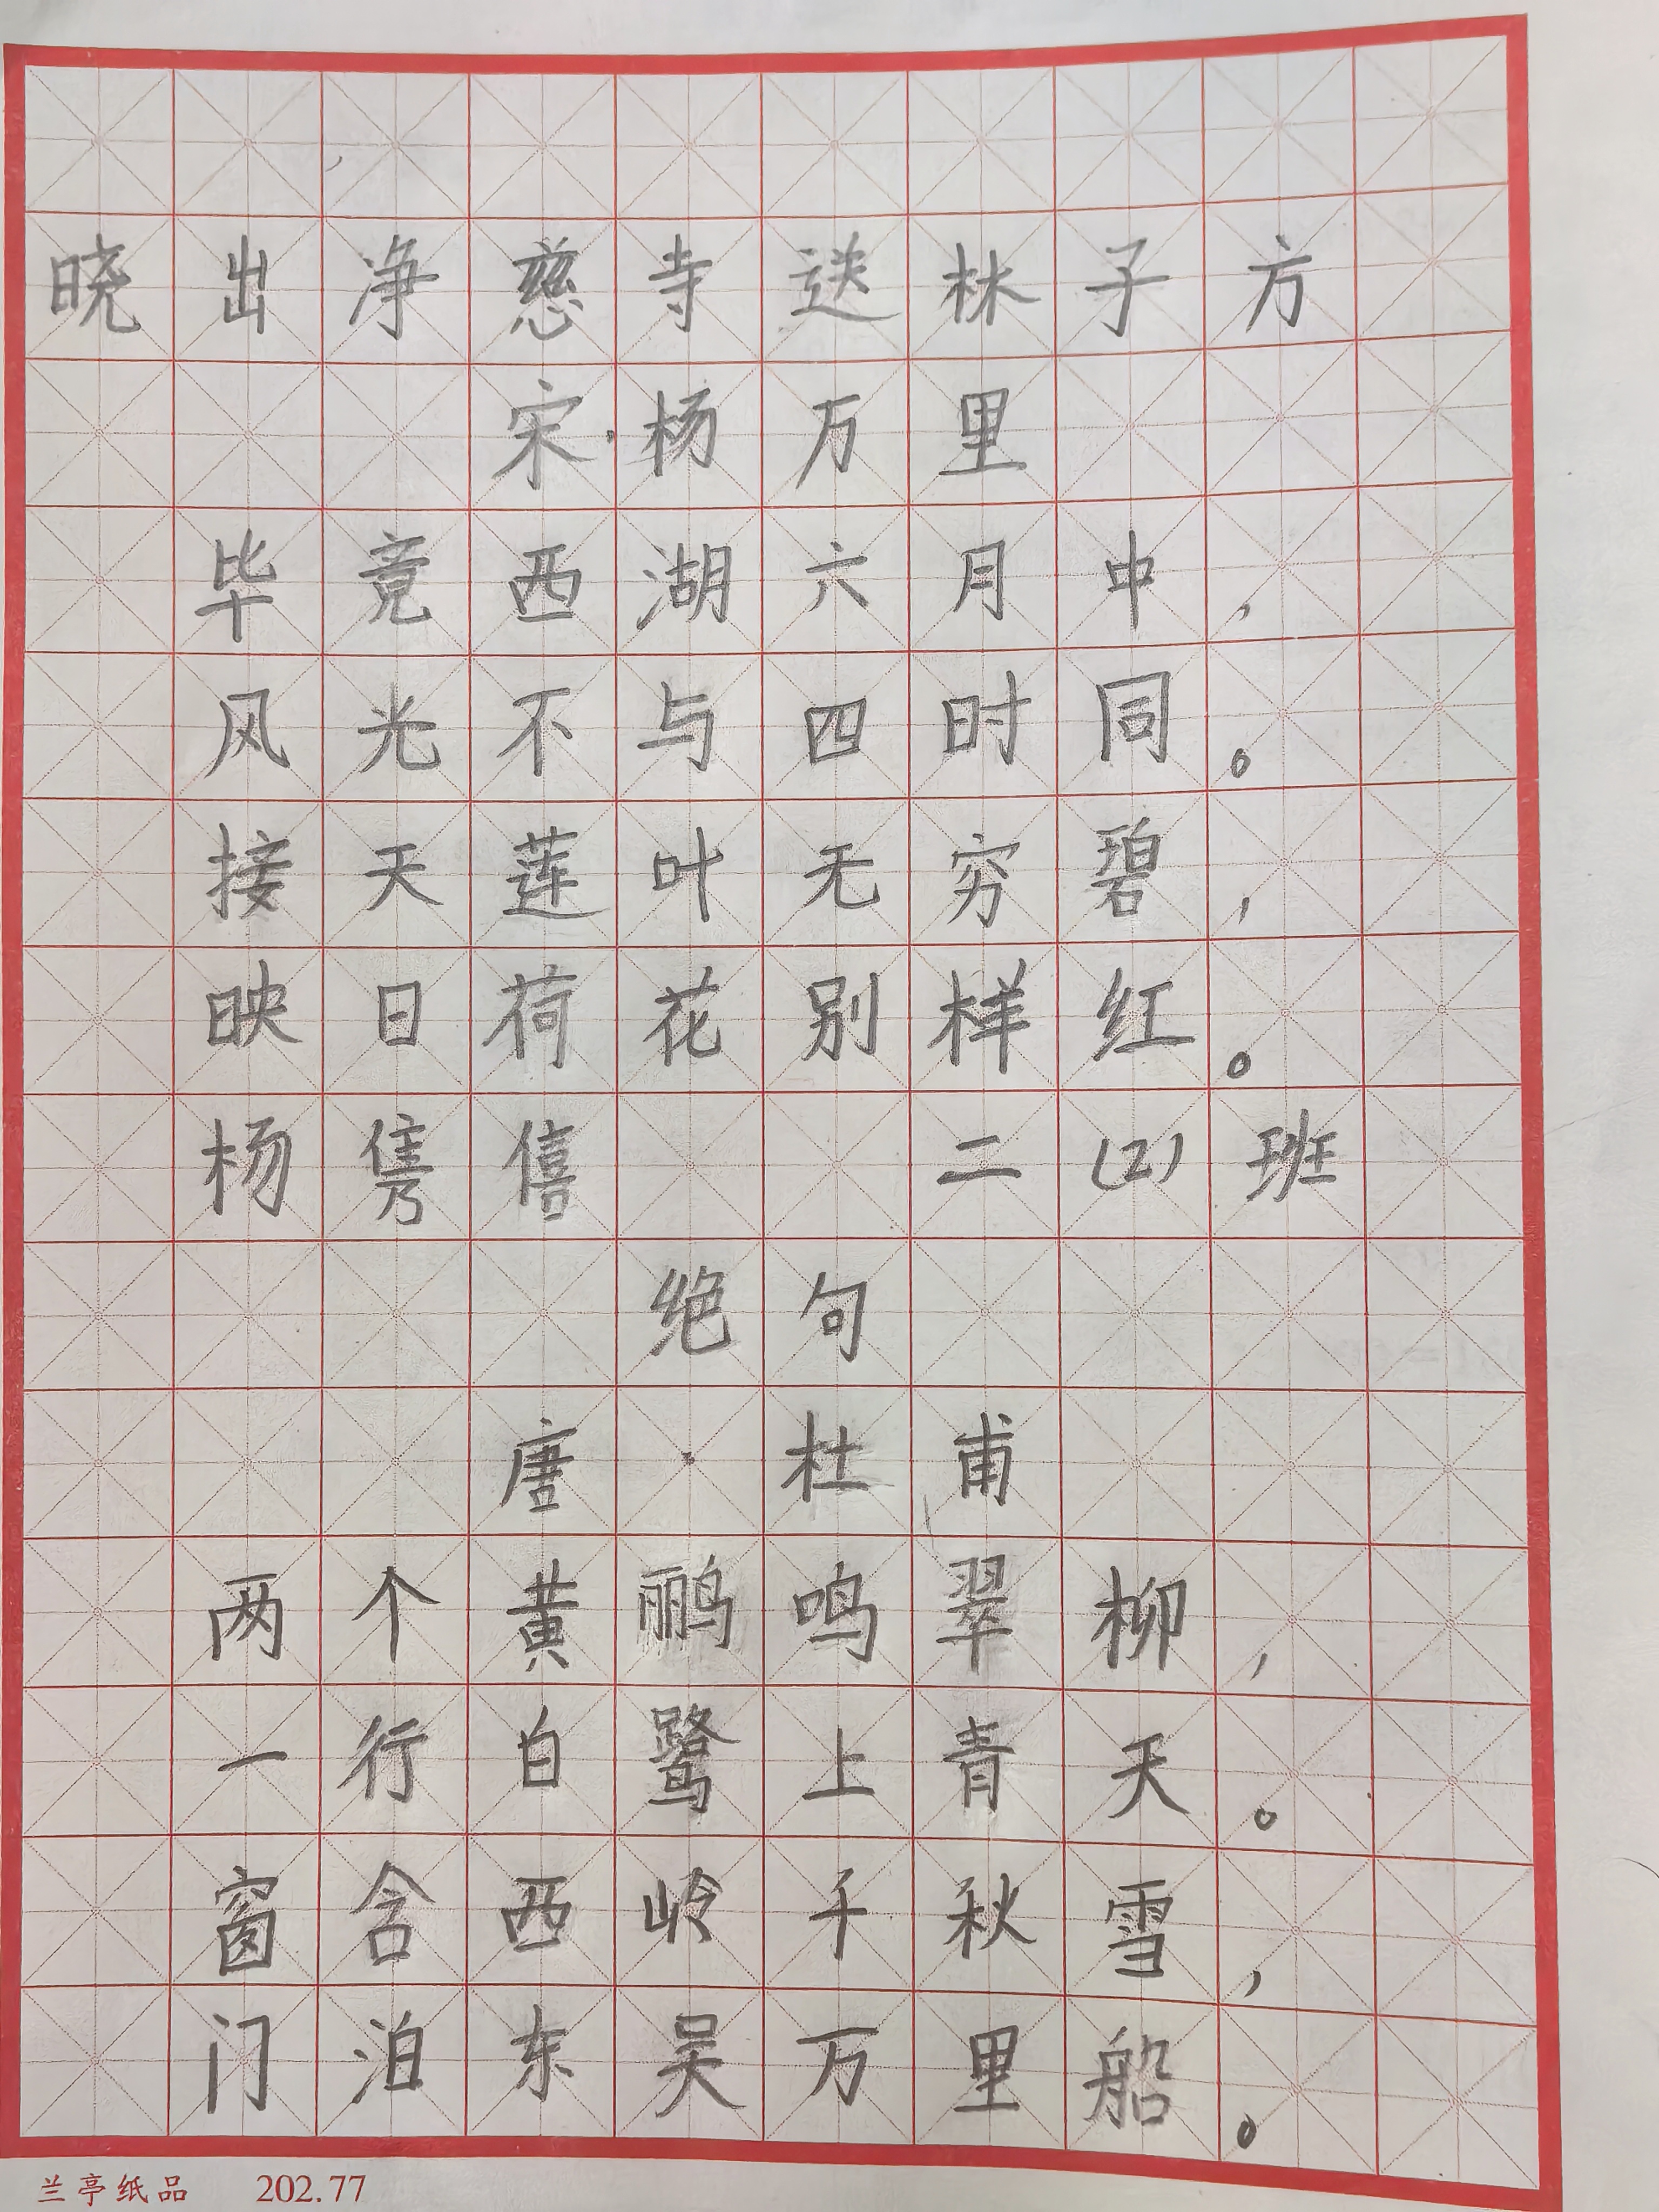 晓出净慈寺送林子方
宋·杨万里
毕竟西湖六月中，
风光不与四时同。
接天莲叶无穷碧，
映日荷花别样红。
杨隽僖 二(2)班
绝句
唐·杜甫
两个黄鹂鸣翠柳，
一行白鹭上青天。
窗含西岭千秋雪，
门泊东吴万里船。
兰亭纸品 202.77